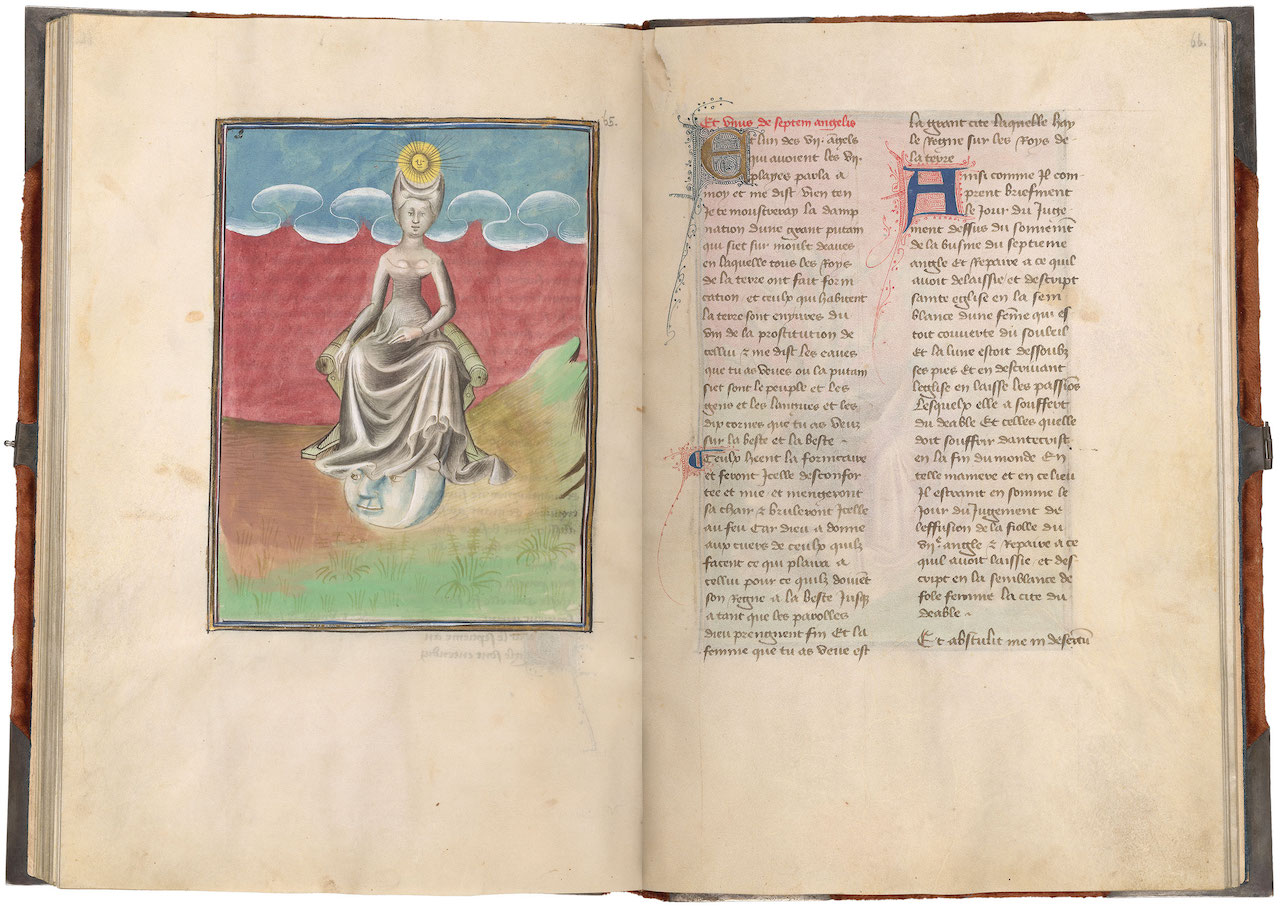 65.
66.
Et vnus de septem angelis
Et lun des vij. angels
qui auoient les vij.
playes parla a
moy et me dist vien ten
Je te monstreray la damp
nation dune grant putain
qui siet sur moult deaues
en laquelle tous les Roys
de la terre ont fait form
cation et ceulx qui habitent
la terre sont enyures du
vin de la prostitution de
cellui & me dist les eaues
que tu as veues ou la putain
siet sont le peuple et les
gens et les langues et les
dix cornes que tu as veuz
sur la beste et la beste
Ceulx heent la fornicaire
et feront Icelle desconfor
tee et nue et mengeront
sa chair & bruleront Icelle
au feu Car dieu a donne
aux cuers de ceulx quilz
facent ce qui plaira a
cellui pour ce quilz doiuent
son Regne a la beste Jusqz
a tant que les parolles
dieu prengnent fin Et la
femme que tu as veue est
la grant cite laquelle hay
le Regne sur les Roys de
la terre
Ainsi comme Il com
prent briefment
le Jour du Juge
ment dessus du sonnement
de la busine du septieme
angle Et Repaire a ce quil
auoit delaissie et descript
sainte eglise en la sem
blance dune feme qui est
toit couuerte du souleil
Et la lune estoit dessoubz
ses pies Et en descriuant
leglise en laisse les passions
Lesquelx elle a souffert
du deable Et celles quelle
doit souffrir dantecrist
en la fin du monde En
telle maniere et en ce lieu
Il escriant en somme le
Jour du Jugement de
leffusion de la fiolle du
vije angle & Repaire a ce
quil auoit laissie et des
cript en la semblance de
fole femme la cite du
deable
Et abstulit me in desertu